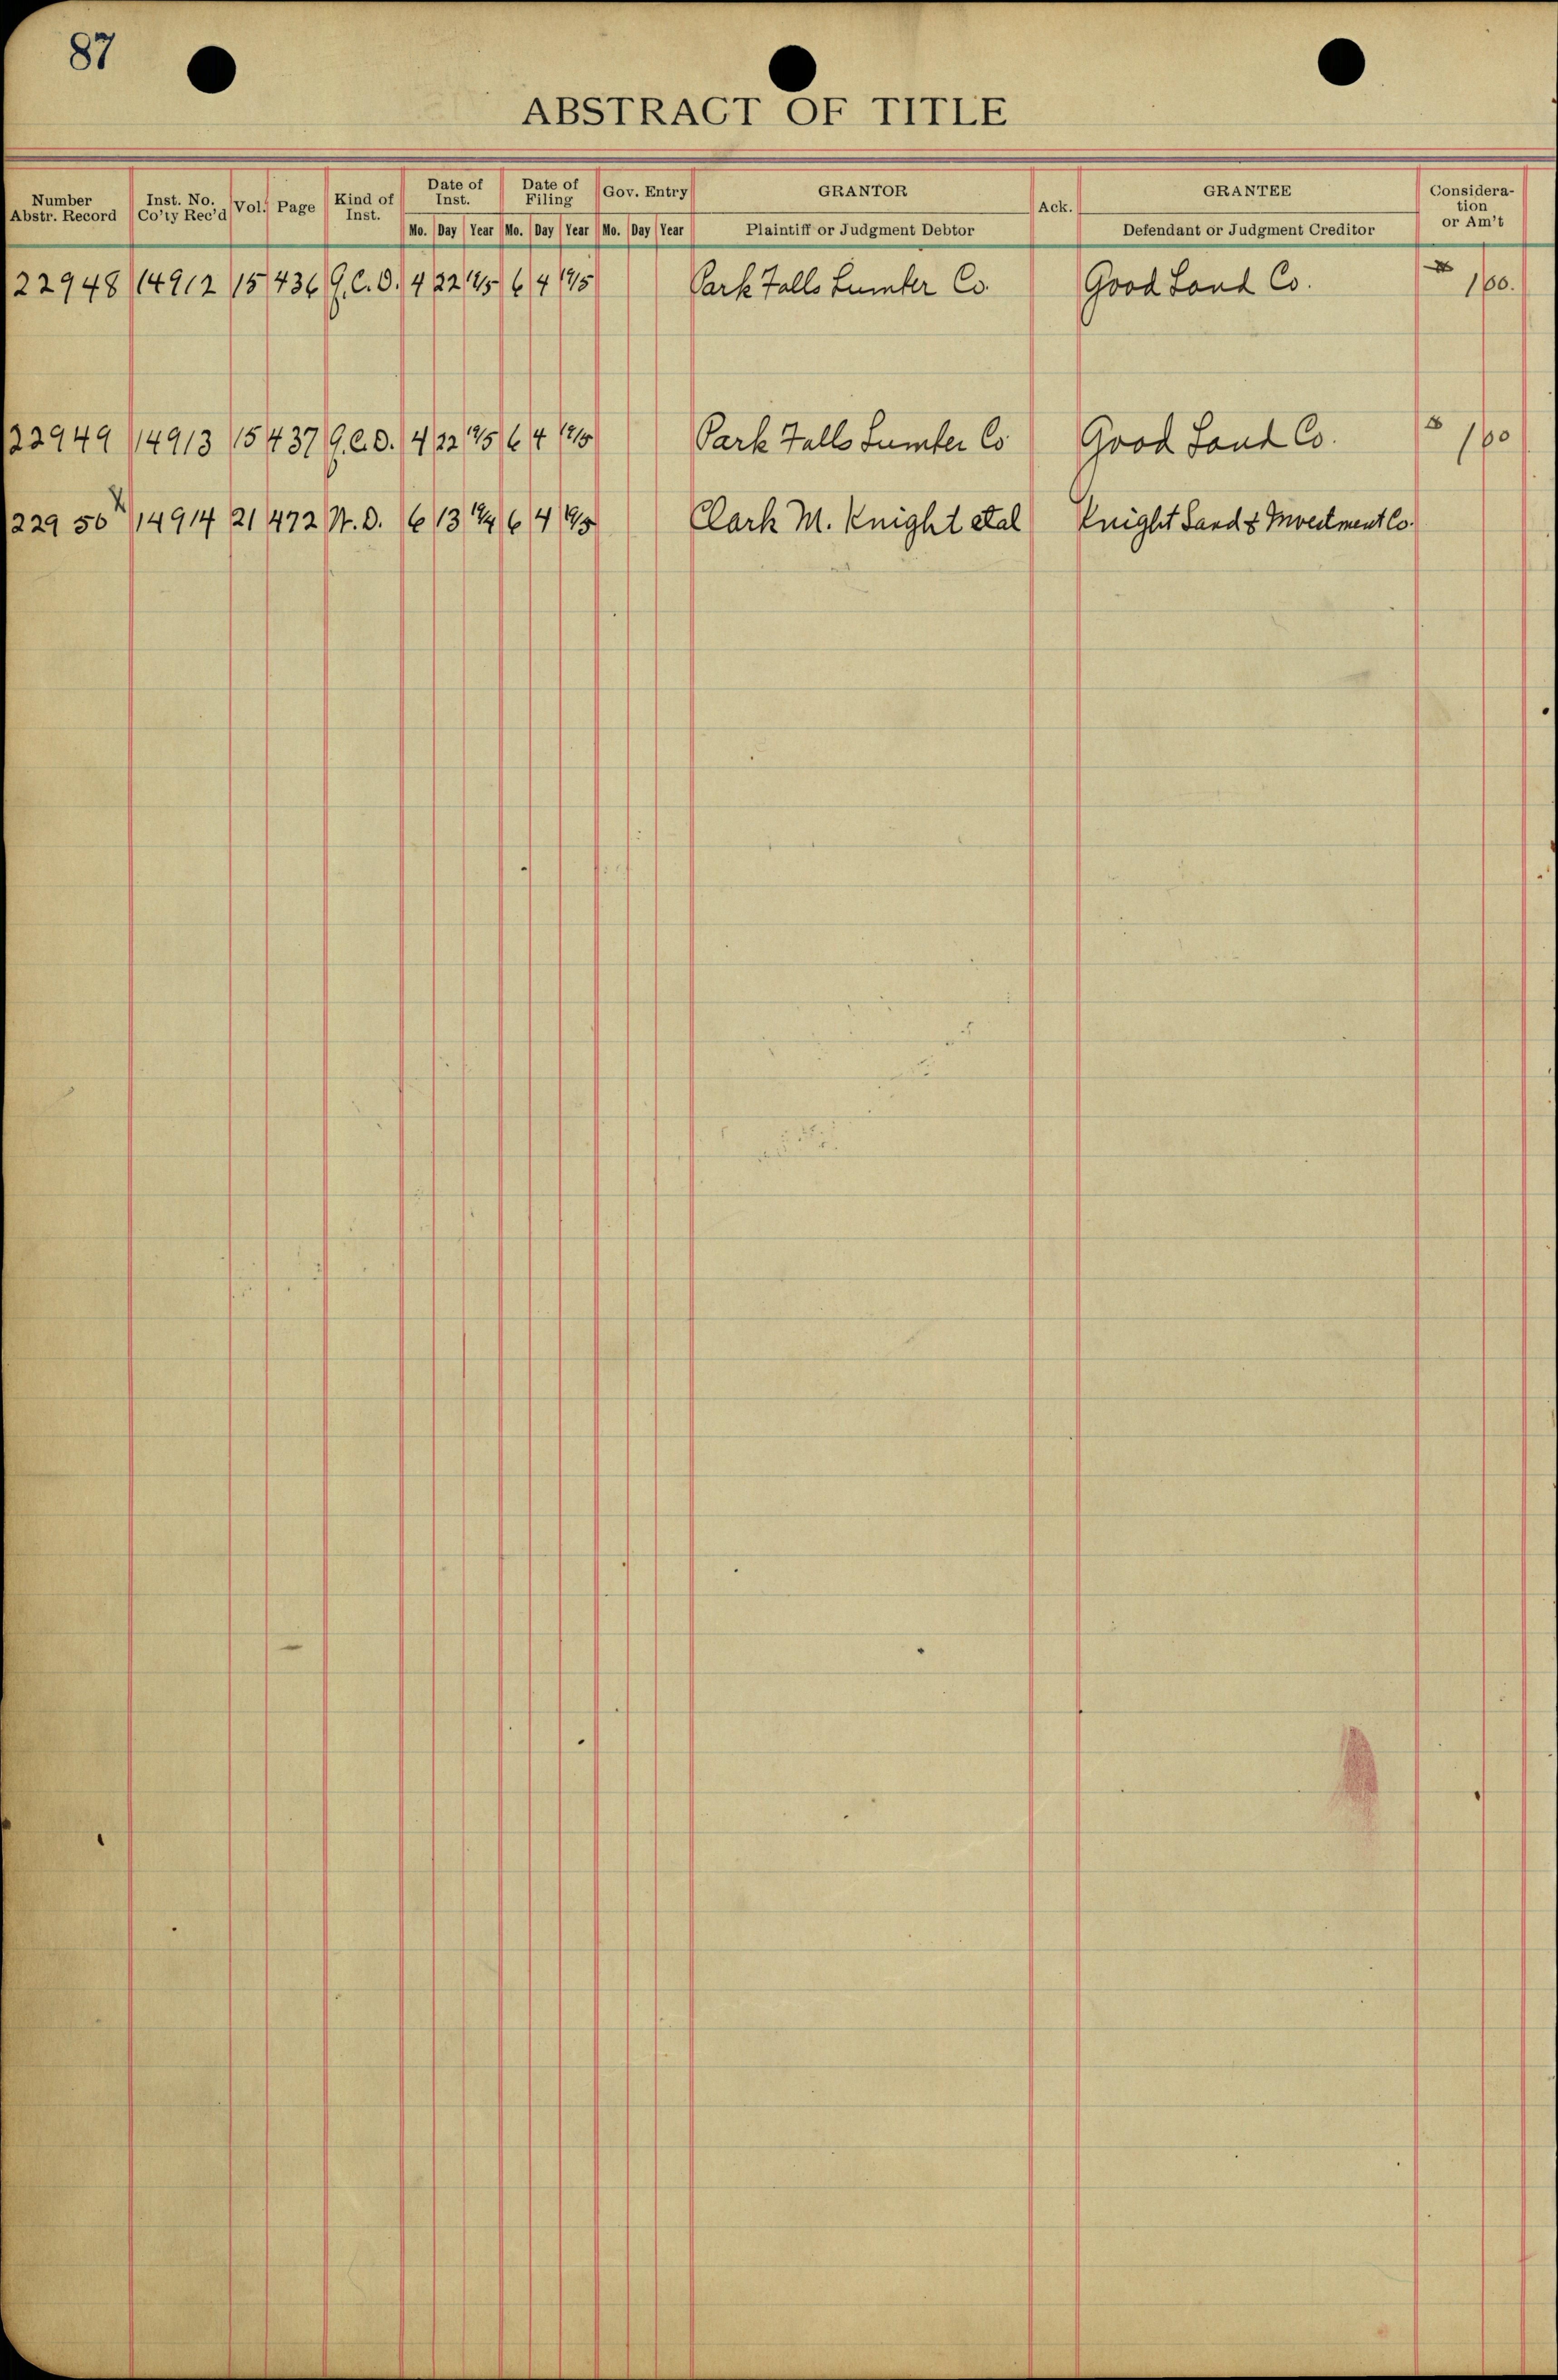 87
ABSTRACT OF TITLE
Number Abstr. Record | Inst. No. Co'ty Rec'd | Vol. | Page | Kind of Inst. | Date of Inst. Mo. Day Year | Date of Filing Mo. Day Year | Gov. Entry Mo. Day Year | GRANTOR Plaintiff or Judgment Debtor | Ack. | GRANTEE Defendant or Judgment Creditor | Consideration or Am't
22948 14912 15 436 Q.C.D. 4 22 1915 6 4 1915 Park Falls Lumber Co. Good Land Co. $ 1 00.
22949 14913 15 437 Q.C.D. 4 22 1915 6 4 1915 Park Falls Lumber Co Good Land Co. $ 1 00
22950 x 14914 21 472 W.D. 6 13 1914 6 4 1915 Clark M. Knight et al Knight Land & Investment Co.